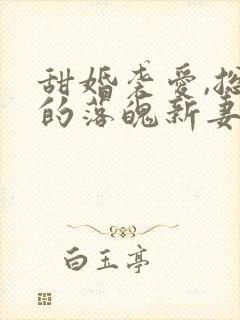 甜婚袭爱,总
的落魄新妻
白玉亭